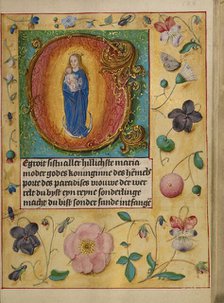 Egroit sistu aller hillichste maria
moder godes koninginne des hemels
porte des paradises vrouwe der wer
relt du byst eyn reyne sonderlinge
macht du bist sonder sunde intfange